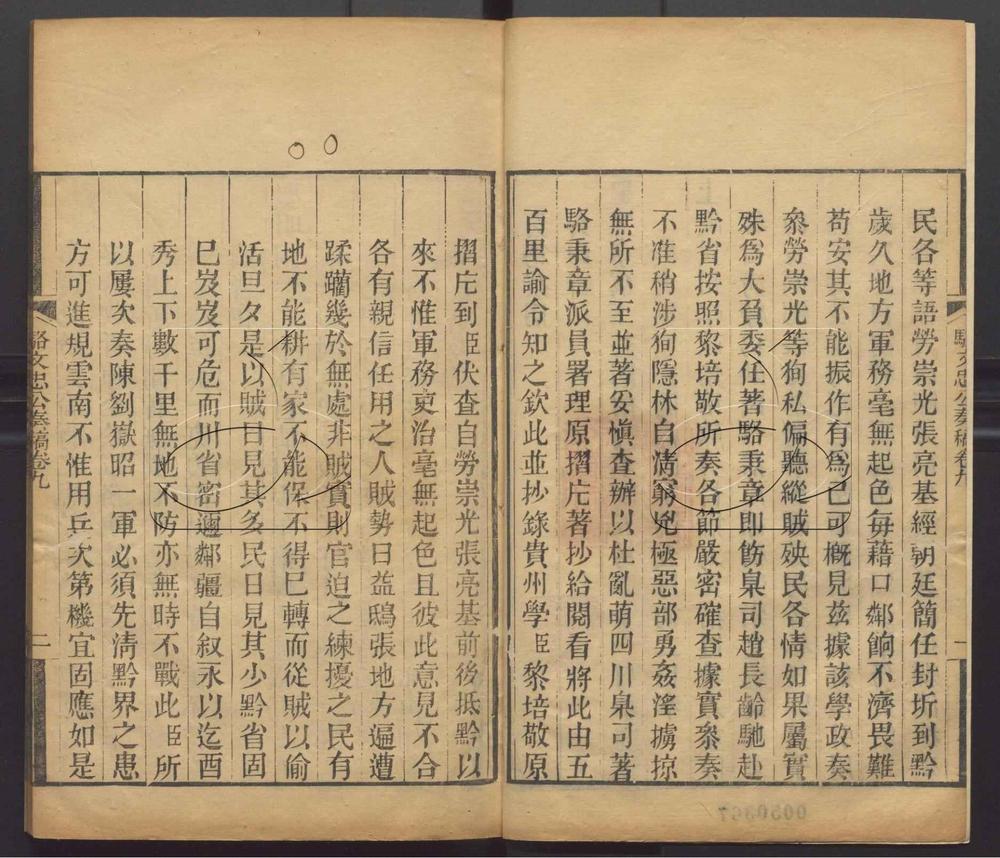 民各等語勞崇光張亮基經朝廷簡任封圻到黔
歲久地方軍務毫無起色每藉口鄰餉不濟畏難
苟安其不能振作有為已可概見茲據該學政奏
叅勞崇光等狥私偏聽縱賊殃民各情如果屬實
殊為大負委任著駱秉章即飭臬司趙長齡馳赴
黔省按照黎培敬所奏各節嚴密確查據實叅奏
不准稍涉狥隱林自清窮兇極惡部勇姦淫擄掠
無所不至並著妥慎查辦以杜亂萌四川臬司著
駱秉章派員署理原摺片著抄給閱看將此由五
百里諭令知之欽此並抄錄貴州學臣黎培敬原
駱文忠公奏稿卷九
一
摺片到臣伏查自勞崇光張亮基前後抵黔以
來不惟軍務吏治毫無起色且彼此意見不合
各有親信任用之人賊勢日益鴟張地方遍遭
蹂躪幾於無處非賊實則官迫之練擾之民有
地不能耕有家不能保不得已轉而從賊以偷
活旦夕是以賊日見其多民日見其少黔省固
已岌岌可危而川省密邇鄰疆自叙永以迄酉
秀上下數千里無地不防亦無時不戰此臣所
以屢次奏陳劉嶽昭一軍必須先清黔界之患
方可進規雲南不惟用兵次第機宜固應如是
駱文忠公奏稿卷九
二
0050367